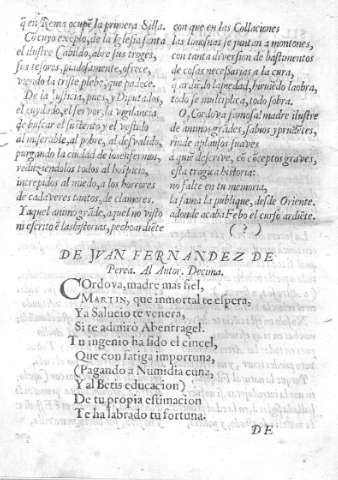 q̃ en Roma ocupe la primera Silla.
Co cuyo exẽplo, de la Iglesia santa
el ilustre Cabildo, abre sus troges,
sus tesores, piadosamente, ofrece,
viendo la triste plebe, que padece.
De la Iusticia, pues, y Diputados,
el cuydado, el fervor, la vigilancia
de buscar el sustento y el vestido
al miserable, al pobre, al desvalido,
purgando la ciudad de los enfermos,
reduziendolos todos al hospicio,
increpidos al miedo, a los horrores
de cadaveres tantos, de clamores.
Ya aquel animo grãde, aquel no visto
ni escrito ẽ las historias, pecho ardiẽte
con que en las Collaciones
las limosnas se juntan a montones,
con tanta diversion de bastimentos
de cosas necessarias a la cura,
q̃ ardiẽdo la piedad, huniẽdo la obra,
todo se multiplica, todo sobra.
O, Cordova famosa! madre ilustre
de animos grãdes, sabios y prudẽtes,
rinde aplausos suaves
a quiẽ descrive, cõ cõceptos graves,
esta tragica historia:
no falte en tu memoria,
la fama la publique, desde Oriente.
adonde acaba Febo el curso ardiẽte.
( ? )
DE JVAN FERNANDEZ DE
Perea. Al Autor. Decima.
CORDOVA, madre mas fiel,
MARTIN, que inmortal te espera,
Ya Salucio te venera,
Si te admirò Abenragel.
Tu ingenio ha sido el cincel,
Que con fatiga importuna,
(Pagando a Numidia cuna,
Y al Betis educacion)
De tu propia estimacion
Te ha labrado tu fortuna.
DE